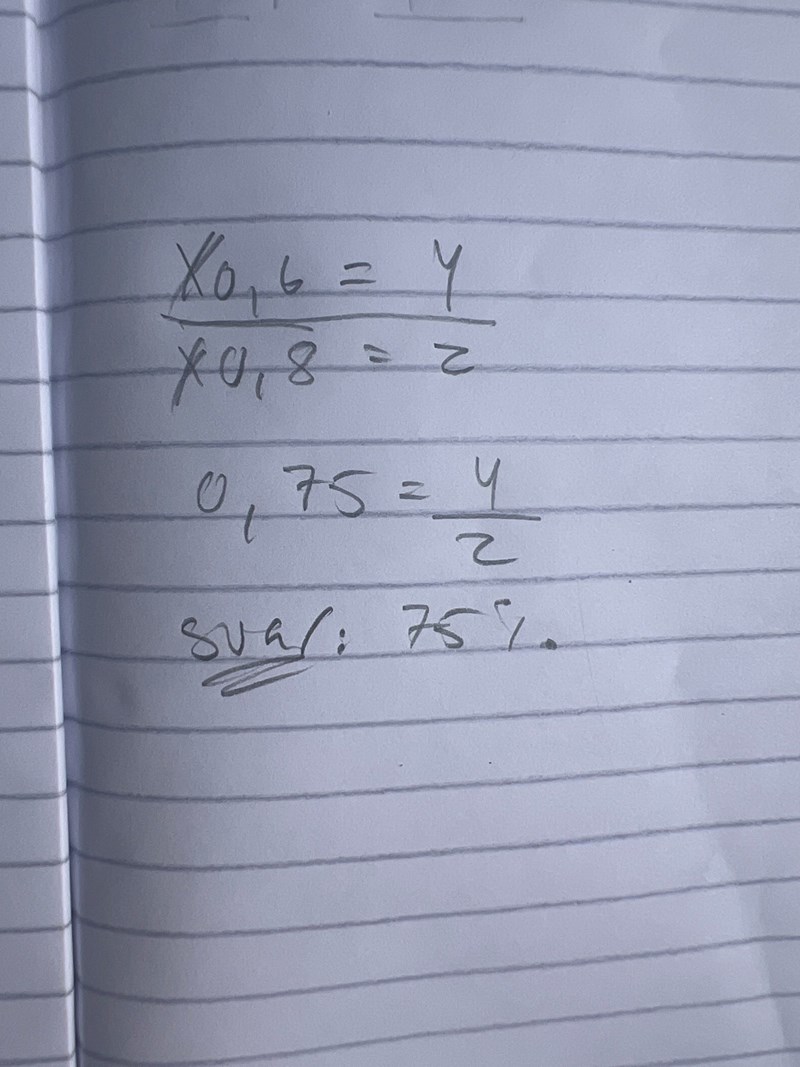 x0,6 = y
x0,8 = z
0,75 = y
z
svar: 75%.